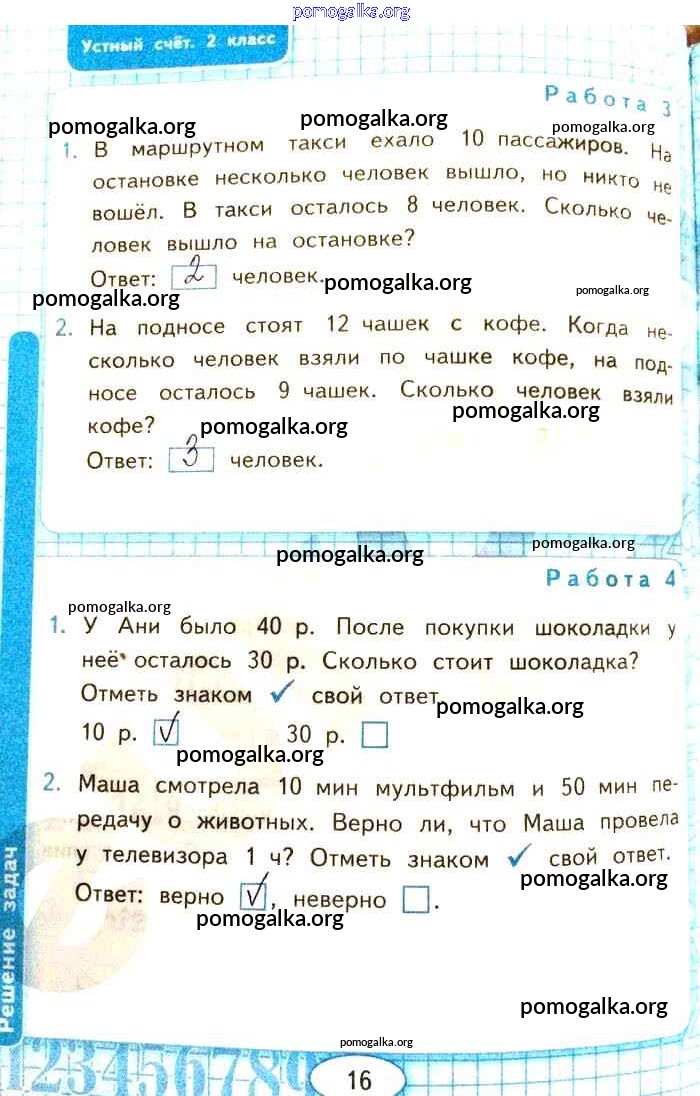 pomogalka.org
Устный счёт. 2 класс
Работа 3
pomogalka.org pomogalka.org pomogalka.org
1. В маршрутном такси ехало 10 пассажиров. На
остановке несколько человек вышло, но никто не
вошёл. В такси осталось 8 человек. Сколько че-
ловек вышло на остановке?
Ответ: 2 человек.
pomogalka.org pomogalka.org pomogalka.org
2. На подносе стоят 12 чашек с кофе. Когда не-
сколько человек взяли по чашке кофе, на под-
носе осталось 9 чашек. Сколько человек взяли
pomogalka.org
кофе? pomogalka.org
Ответ: 3 человек.
pomogalka.org pomogalka.org
Работа 4
pomogalka.org
1. У Ани было 40 р. После покупки шоколадки у
неё осталось 30 р. Сколько стоит шоколадка?
Отметь знаком ✓ свой ответ
pomogalka.org
10 р. ✓ 30 р.
pomogalka.org
2. Маша смотрела 10 мин мультфильм и 50 мин пе-
редачу о животных. Верно ли, что Маша провела
у телевизора 1 ч? Отметь знаком ✓ свой ответ.
pomogalka.org
Ответ: верно ✓, неверно .
pomogalka.org
Решение задач
pomogalka.org
pomogalka.org
1234567890
16